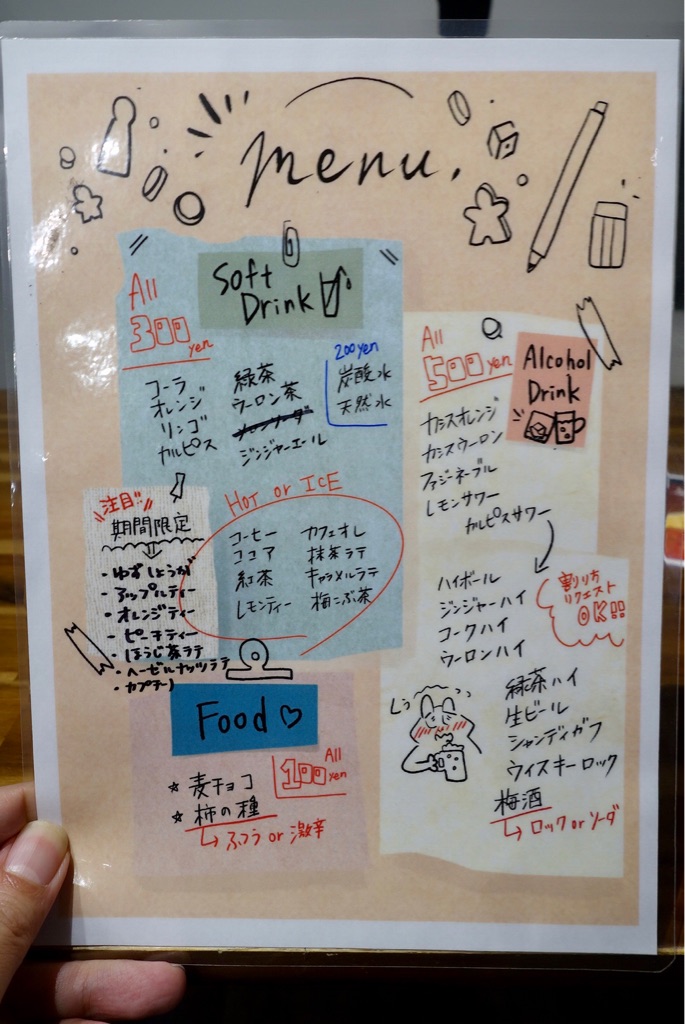 menu.
Soft
Drink
All
300 yen
コーラ
オレンジ
リンゴ
カルピス
緑茶
ウーロン茶
ジンジャーエール
200yen
炭酸水
天然水
HOT or ICE
コーヒー
ココア
紅茶
レモンティー
カフェオレ
抹茶ラテ
キャラメルラテ
梅こぶ茶
注目!!
期間限定
・ゆずしょうが
・アップルティー
・オレンジティー
・ピーチティー
・ほうじ茶ラテ
・ヘーゼルナッツラテ
・カプチーノ
Food♡
All
100 yen
☆ 麦チョコ
☆ 柿の種
↳ ふつう or 激辛
All
500 yen
Alcohol
Drink
カシスオレンジ
カシスウーロン
ファジーネーブル
レモンサワー
カルピスサワー
ハイボール
ジンジャーハイ
コークハイ
ウーロンハイ
割り方
リクエスト
OK!!
緑茶ハイ
生ビール
シャンディガフ
ウィスキーロック
梅酒
↳ ロック or ソーダ